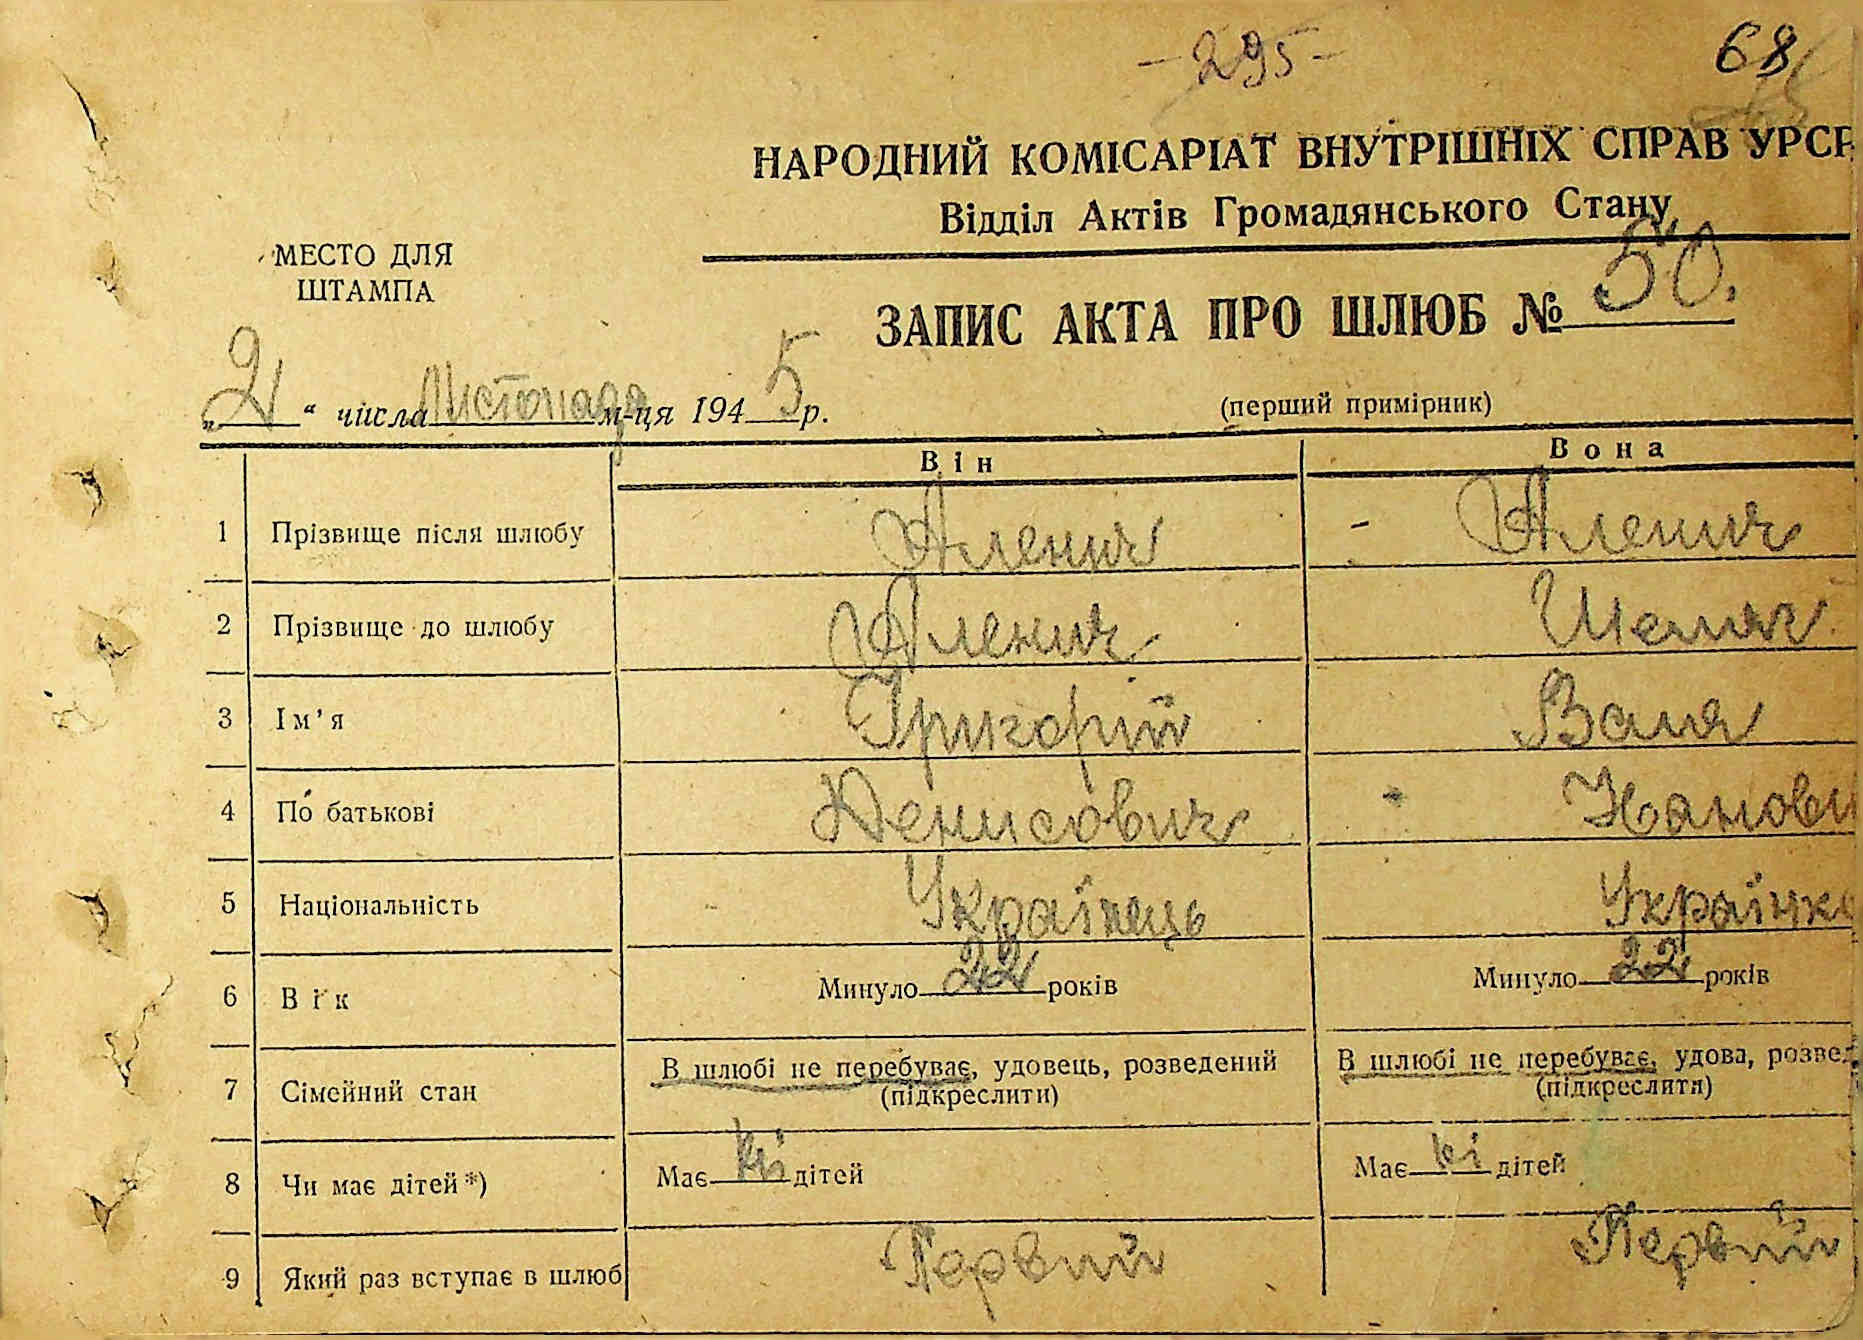 - 295 -
68
НАРОДНИЙ КОМІСАРІАТ ВНУТРІШНІХ СПРАВ УРСР
Відділ Актів Громадянського Стану
МЕСТО ДЛЯ
ШТАМПА
ЗАПИС АКТА ПРО ШЛЮБ № 50.
„2“ числа Листопада м-ця 1945 р.
(перший примірник)
Він Вона
1 Прізвище після шлюбу Аленич - Аленич
2 Прізвище до шлюбу Аленич
3 Ім'я Григорій Валя
4 По батькові Денисович
5 Національність Українець Українка
6 Вік Минуло 22 років Минуло 22 років
7 Сімейний стан В шлюбі не перебуває, удовець, розведений В шлюбі не перебуває, удова, розвед
(підкреслити) (підкреслити)
8 Чи має дітей*) Має ні дітей Має ні дітей
9 Який раз вступає в шлюб Первий Первий